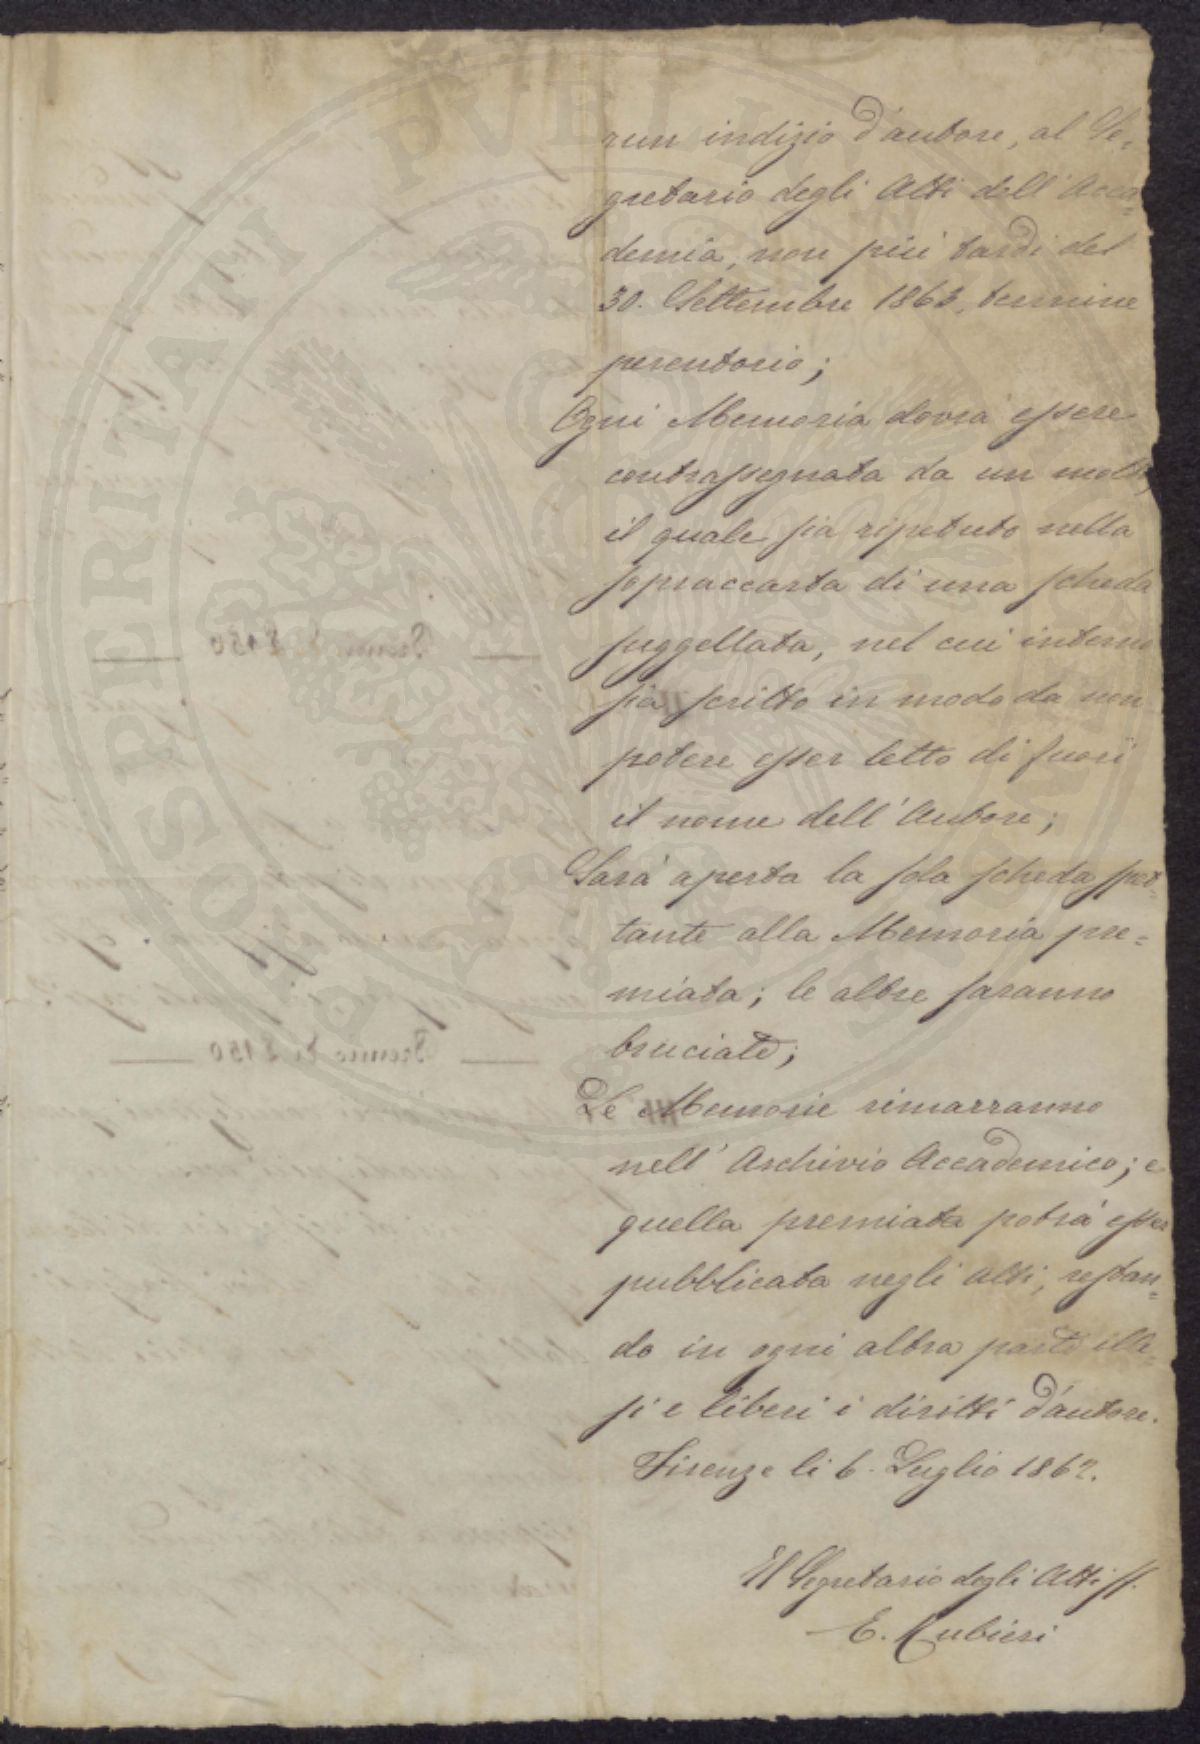 run indizio d'autore, al Se-
gretario degli Atti dell'Acca-
demia, non più tardi del
30. Settembre 1863, termine
perentorio;
Ogni Memoria dovrà essere
contrassegnata da un motto,
il quale sia ripetuto nella
sopraccarta di una scheda
suggellata, nel cui interno
sia scritto in modo da non
potere esser letto di fuori
il nome dell'Autore;
Sarà aperta la sola scheda spet-
tante alla Memoria pre=
miata; le altre saranno
bruciate;
Le Memorie rimarranno
nell'Archivio Accademico; e
quella premiata potrà esser
pubblicata negli Atti, restan=
do in ogni altra parte ille=
si e liberi i diritti d'autore.
Firenze li 6. Luglio 1862.
Il Segretario degli Atti ff.
E. Rubieri
Premio di £ 150
Premio di £ 150
PVBLICAE
PROSPERITATI